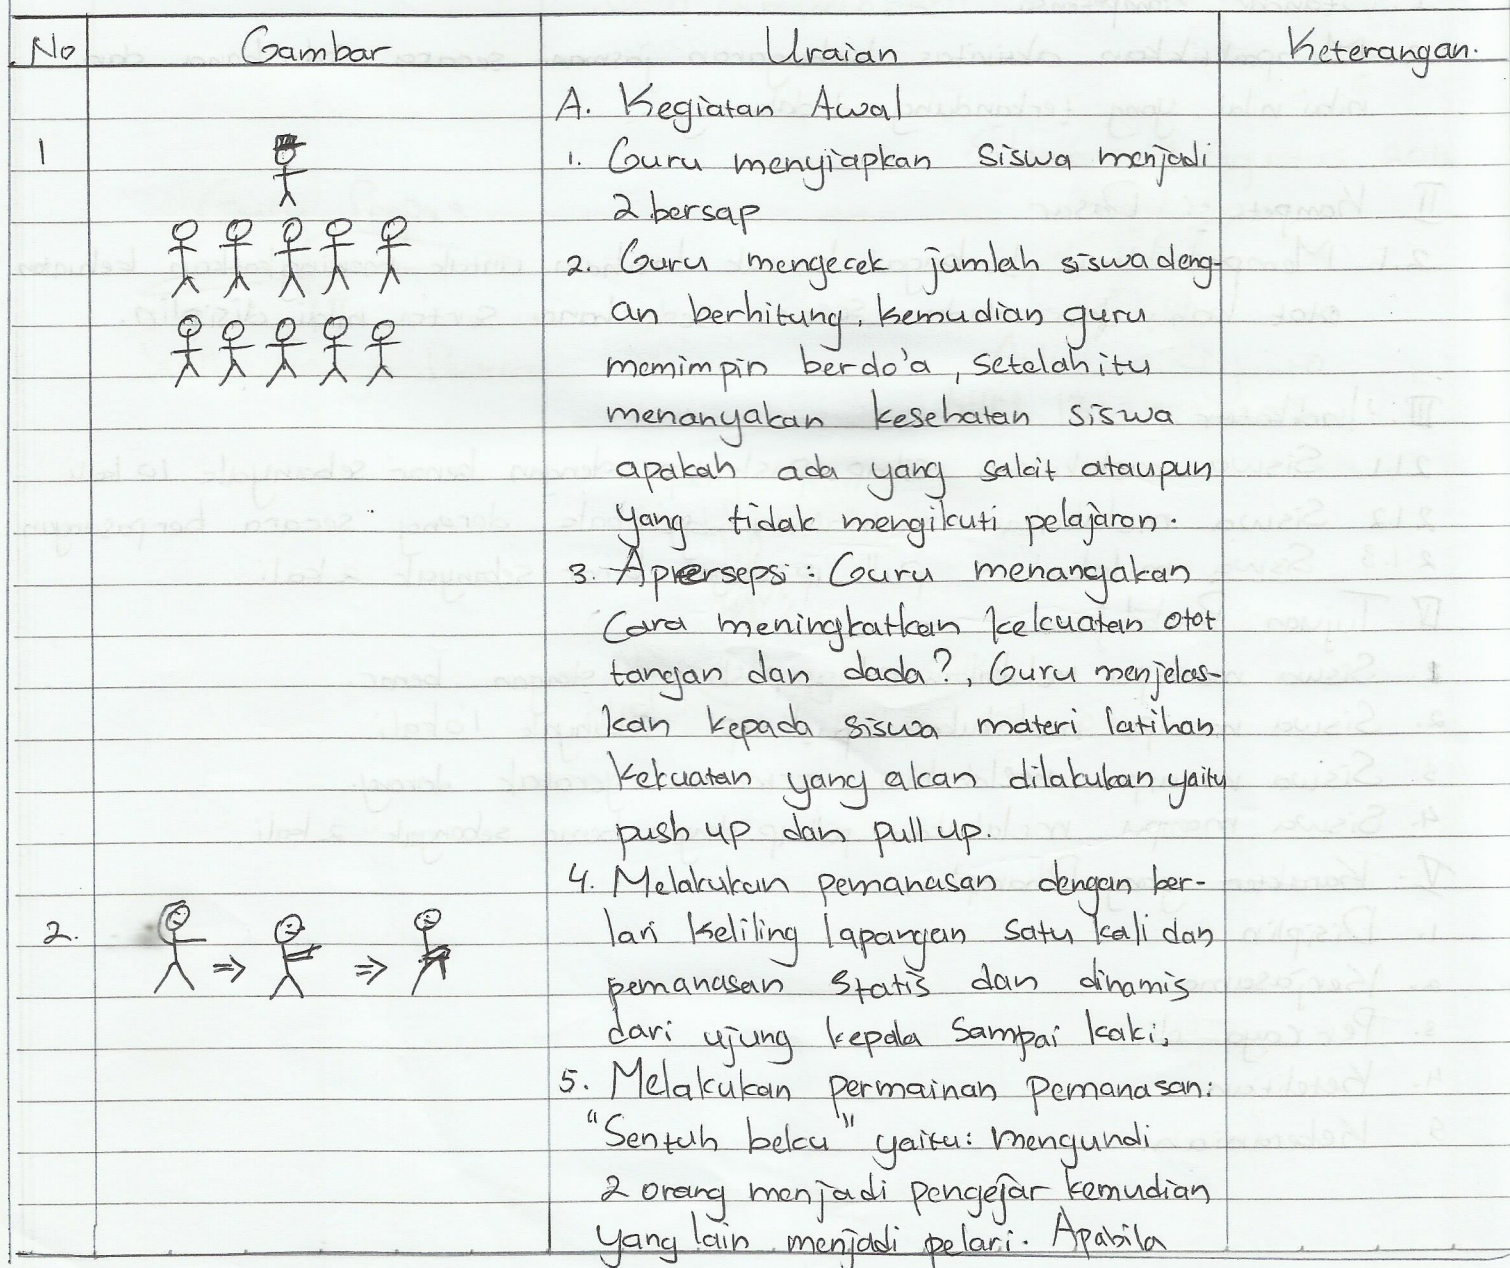 No Gambar Uraian Keterangan.
A. Kegiatan Awal
1 1. Guru menyiapkan siswa menjadi
2 bersap
2. Guru mengecek jumlah siswa deng-
an berhitung, kemudian guru
memimpin berdo'a, setelah itu
menanyakan kesehatan siswa
apakah ada yang sakit ataupun
yang tidak mengikuti pelajaran.
3. Apersepsi: Guru menanyakan
Cara meningkatkan kekuatan otot
tangan dan dada?, Guru menjelas-
kan kepada siswa materi latihan
kekuatan yang akan dilakukan yaitu
push up dan pull up.
4. Melakukan pemanasan dengan ber-
2. lari keliling lapangan satu kali dan
pemanasan statis dan dinamis
dari ujung kepala sampai kaki.
5. Melakukan permainan pemanasan:
"Sentuh beku" yaitu: mengundi
2 orang menjadi pengejar kemudian
yang lain menjadi pelari. Apabila